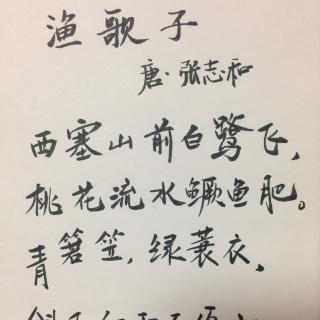 渔歌子
唐·张志和
西塞山前白鹭飞,
桃花流水鳜鱼肥。
青箬笠,绿蓑衣,